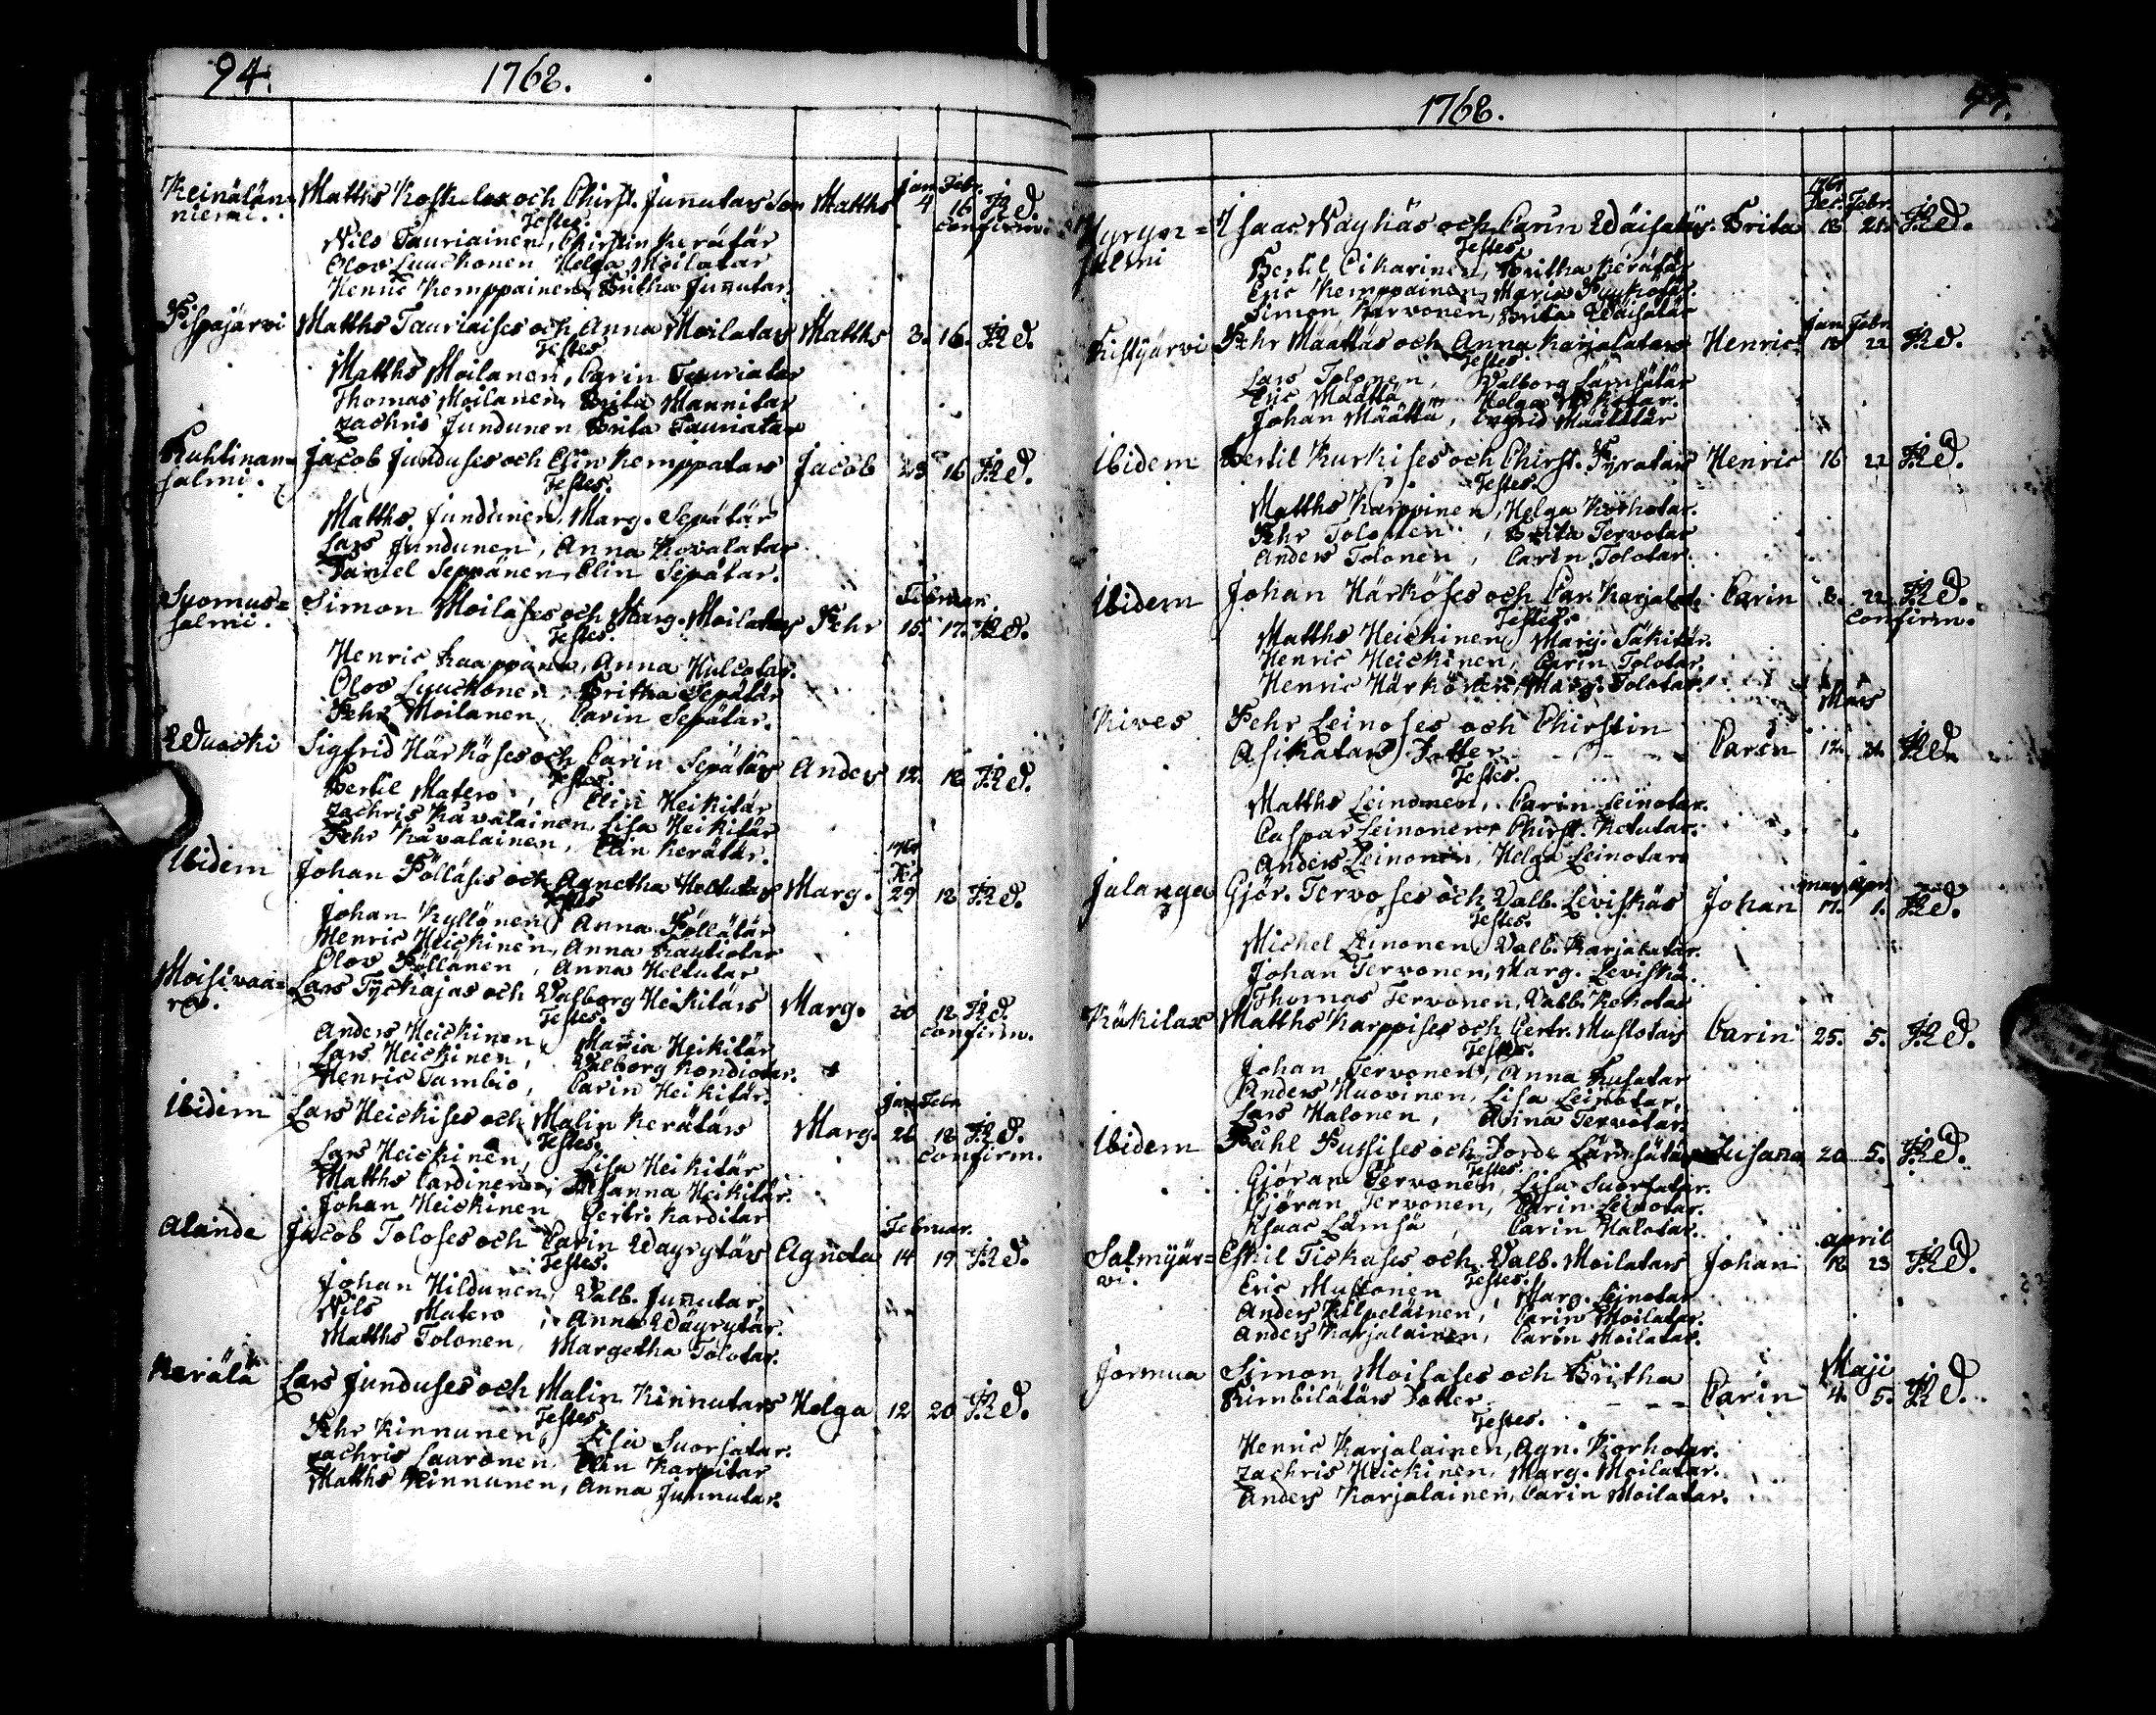 94.
1768.
Jan. Febr.
Keinälän= Matths Koskelos och Chirst. Junutars Son Matths 4 16 J. R. d.
niemi. Testes. confirm.
Nils Tauriainen, Chirstin Kerätär
Olov Luuckonen Helga Moilatar
Henric Kemppainen, Britha Junutar.
Pispajärvi Matths Tauriaises och Anna Moilatars Matths 3. 16. J. R. d.
Testes
Matths Moilanen, Carin Tauriatar
Thomas Moilanen, Brita Mannitar
Zachris Jundunen Brita Tauriatar
Ruhtinan= Jacob Junduses och Elin Kemppatars Jacob 23 16 J. R. d.
salmi. Testes.
Matths Jundunen, Marg. Sepätär
Lars Jundunen, Anna Kovalatar
Daniel Seppänen, Elin Sepätar.
Februar.
Suomus= Simon Moilases och Marg. Moilatars Pehr 15. 17. J. R. d.
salmi. Testes.
Henric Kaappinen, Anna Hulcotar.
Olov Luuckonen, Britha Sepätär
Pehr Moilanen, Carin Sepätar.
Wuocki Sigfrid Härköses och Carin Sepätärs Anders 12. 18 J. R. d.
Testes.
Bertil Matero, Elin Heikitär
Zachris Kavalainen, Lisa Heikitär
Pehr Kavalainen, Elin Kerätär.
1767
Dec.
Ibidem Johan Pölläses och Agnetha Heltutars Marg. 29 18 J. R. d.
Testes
Johan Kyllönen, Anna Pöllätär
Henric Heickinen, Anna Rautiotar
Olov Pöllänen, Anna Heltutar
Moisivaa= Lars Tyckajas och Valborg Heikitärs Marg. 20 18 J. R. d.
ra. Testes. confirm.
Anders Heickinen, Maria Heikitär
Lars Heickinen, Valborg Kondiotar.
Henric Tambio, Carin Heikitär.
Jan. Febr.
Ibidem Lars Heickises och Malin Kerätärs Marg. 26 18 J. R. d.
Testes. confirm.
Lars Heickinen, Lisa Heikitär
Matths Cardinen, Susanna Heikitär.
Johan Heickinen, Gertr. Karditar
Februar.
Alande Jacob Toloses och Carin Wäyrytärs Agneta 14 19 J. R. d.
Testes.
Johan Hildunen, Valb. Junutar,
Nils Matero, Anna Wäyrytär.
Matths Tolonen, Margetha Tolotar.
Kerälä Lars Junduses och Malin Kinnutars Helga 12 20 J. R. d.
Testes.
Pehr Kinnunen, Lisa Suorsatar.
Zachris Lauronen, Elin Karpitar
Matths Kinnunen, Anna Junnutar.
1768.
95.
1767
Dec. Febr.
Hyryn= Isaac Nayhäs och Carin Wäisatärs. Brita 18 21. J. R. d.
salmi Testes.
Bertil Cikarinen, Britha Kerätär
Eric Kemppainen, Maria Puukotar.
Simon Karvonen, Brita Wäisatär
Jan. Febr.
Ristijärvi Pehr Määttäs och Anna Karjalatars Henric 18 22 J. R. d.
Testes.
Lars Tolonen, Valborg Lämsätär
Eric Määttä, Helga Korhotar.
Johan Määttä, Ingrid Määttätär
Ibidem Bertil Kurkises och Chirst. Pyratars Henric 16 22 J. R. d.
Testes.
Matths Karppinen, Helga Korhotar.
Pehr Tolonen, Brita Tervotar
Anders Tolonen, Carin Tolotar.
Ibidem Johan Härköses och Car. Karjalat. Carin 8. 22. J. R. d.
Testes. confirm.
Matths Heickinen, Marg. Säkitär.
Henric Heickinen, Carin Tolotar.
Henric Härkönen, Marg. Tolotar.
Mars
Kives Pehr Leinoses och Chirstin
Asikatars Dotter Carin 12. 21. J. R. d.
Testes.
Matths Leinonen, Carin Leinotar.
Caspar Leinonen, Chirst. Ketutar.
Anders Leinonen, Helga Leinotar.
mars apr.
Jalanga Gjör. Tervoses och Valb. Leviskäs Johan 17. 1. J. R. d.
Testes.
Michel Leinonen, Valb. Karjalatar.
Johan Tervonen, Marg. Leviskä.
Thomas Tervonen, Valb. Kehotar
Käkilax Matths Karppises och Gertr. Mustotars Carin 25. 5. J. R. d.
Testes.
Johan Tervonen, Anna Kusatar
Anders Huovinen, Lisa Leinotar,
Lars Halonen, Anna Tervotar.
Ibidem Påhl Pussises och Dorde Lämsätärs Susana 20 5. J. R. d.
Testes.
Gjöran Tervonen, Lisa Suorsatar.
Gjöran Tervonen, Carin Leinotar.
Isaac Lämsä, Carin Halotar.
april
Salmijär= Eskil Tickases och Valb. Moilatars Johan 18 23 J. R. d.
vi. Testes.
Eric Mustonen, Marg. Leinotar
Anders Kilpeläinen, Carin Moilatar.
Anders Karjalainen, Carin Moilatar.
Maji
Jormua Simon Moilases och Britha
Kimbilätärs Dotter Carin 4. 5. J. R. d.
Testes.
Henric Karjalainen, Agn. Korhotar.
Zachris Heickinen, Marg. Moilatar.
Anders Karjalainen, Carin Moilatar.